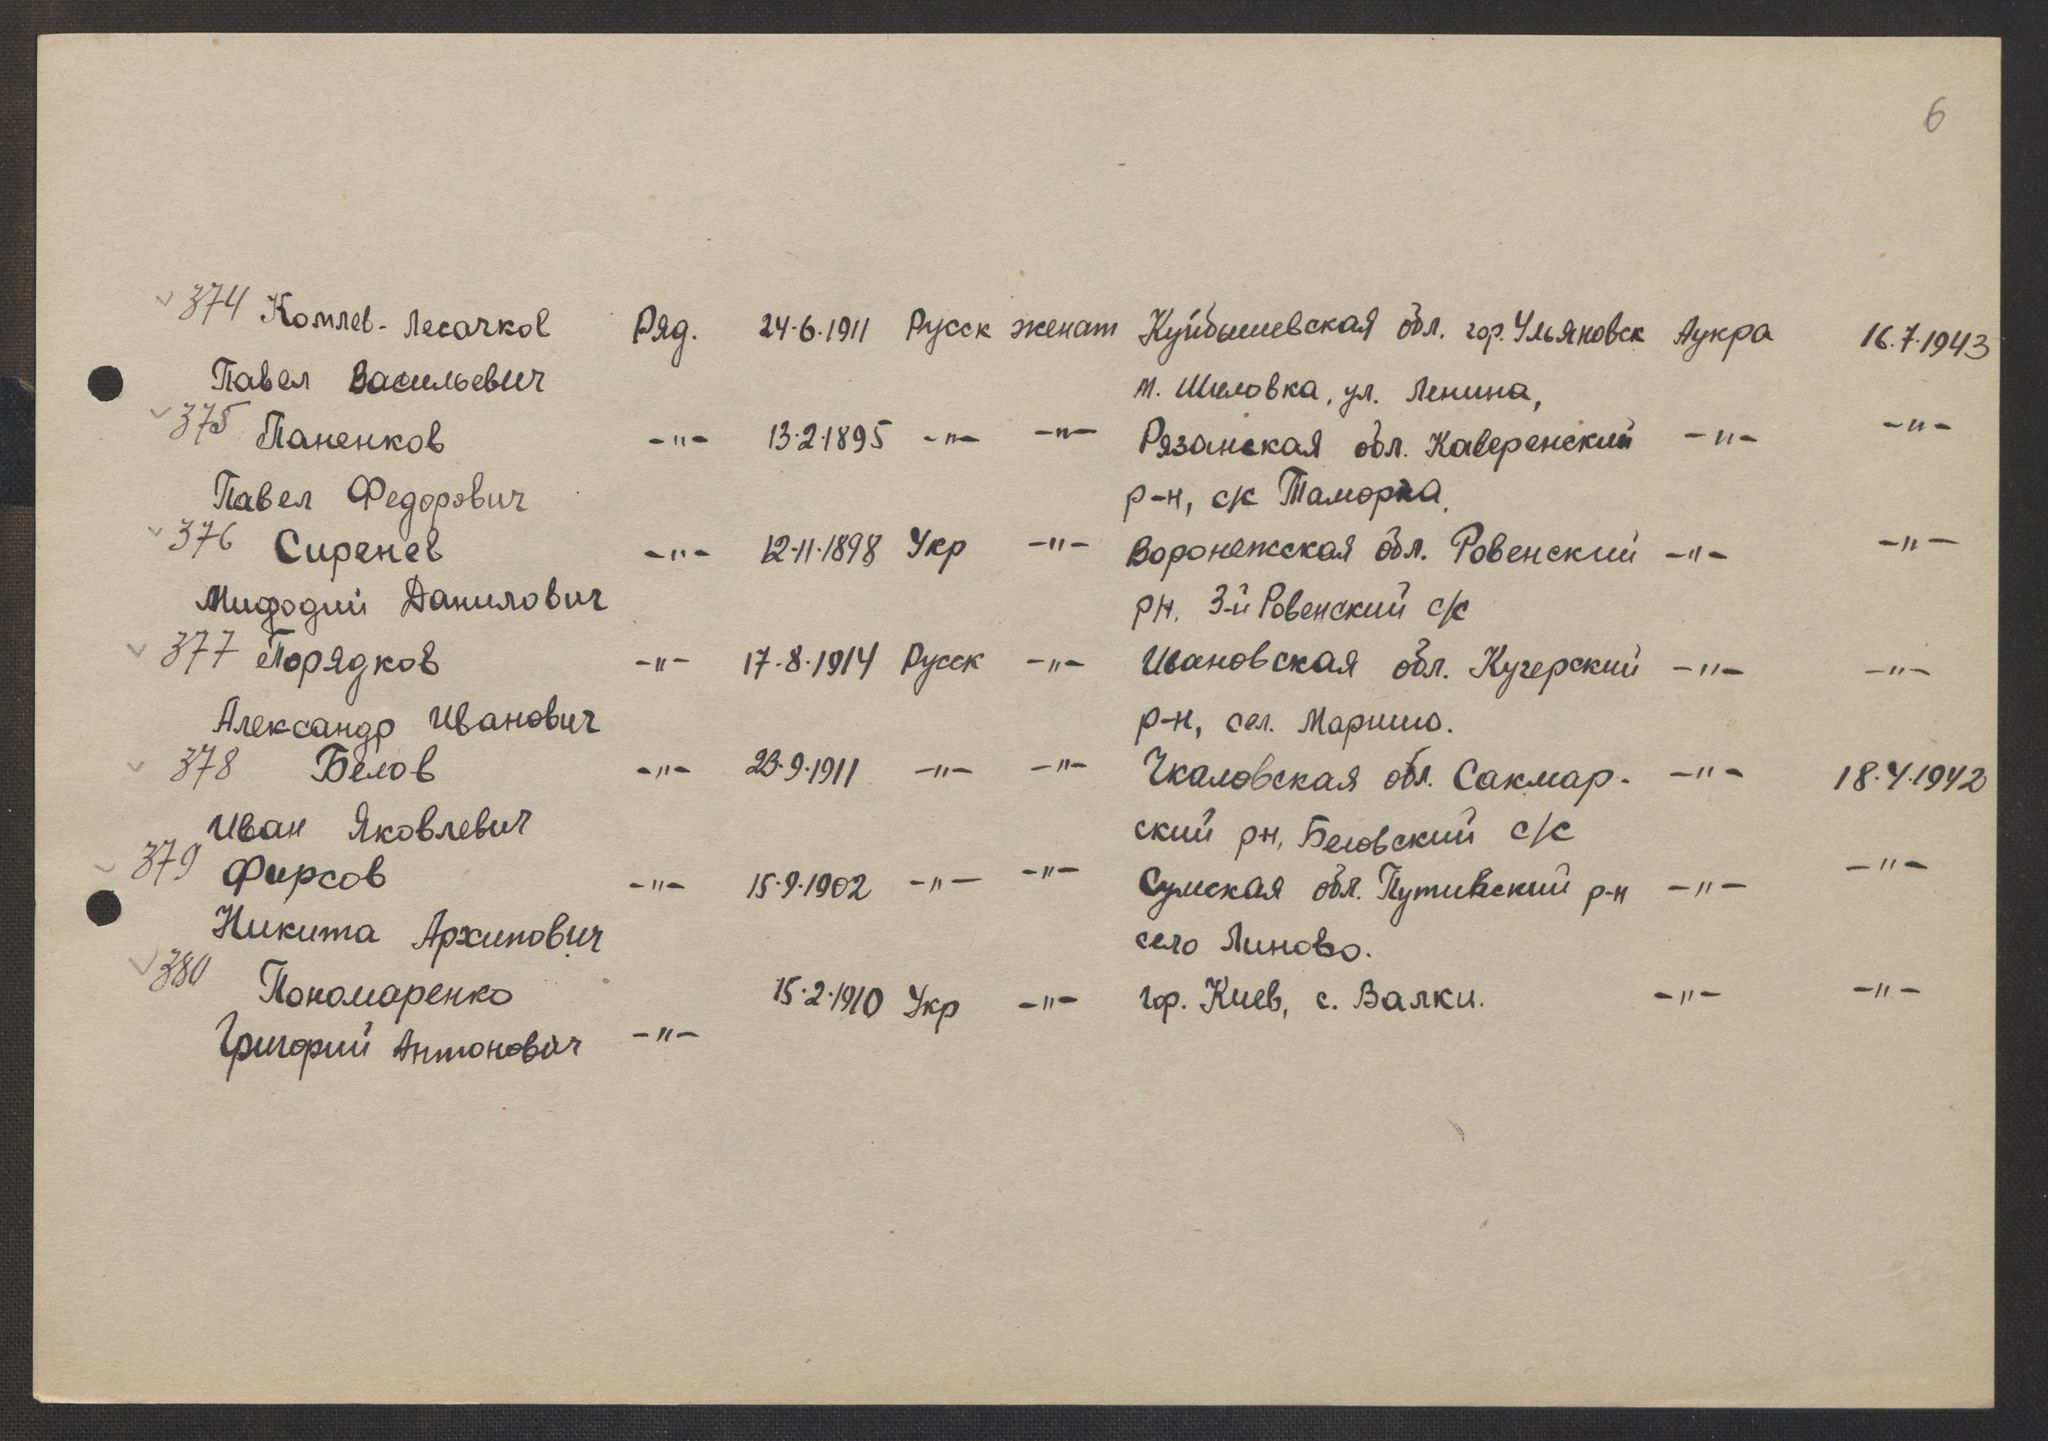 6
374 Комлев-Лесачков Ряд. 24.6.1911 Русск женат Куйбышевская обл. гор. Ульяновск Аукра 16.7.1943
Павел Васильевич м. Шиловка, ул. Ленина,
375 Паненков -"- 13.2.1895 -"- -"- Рязанская обл. Каверенский -"- -"-
Павел Федорович р-н, с/с Таморка.
376 Сиренев -"- 12.11.1898 Укр -"- Воронежская обл. Ровенский -"- -"-
Мифодий Данилович рн. 3-й Ровенский с/с
377 Порядков -"- 17.8.1914 Русск -"- Ивановская обл. Кучерский -"- -"-
Александр Иванович р-н, сел.
378 Белов -"- 23.9.1911 -"- -"- Чкаловская обл. Сакмар- -"- 18.4.1942
Иван Яковлевич ский рн, Беловский с/с
379 Фирсов -"- 15.9.1902 -"- -"- Сумская обл. Путивский р-н -"- -"-
Никита Архипович село Линово.
380 Пономаренко 15.2.1910 Укр -"- гор. Киев, с. Валки. -"- -"-
Григорий Антонович -"-